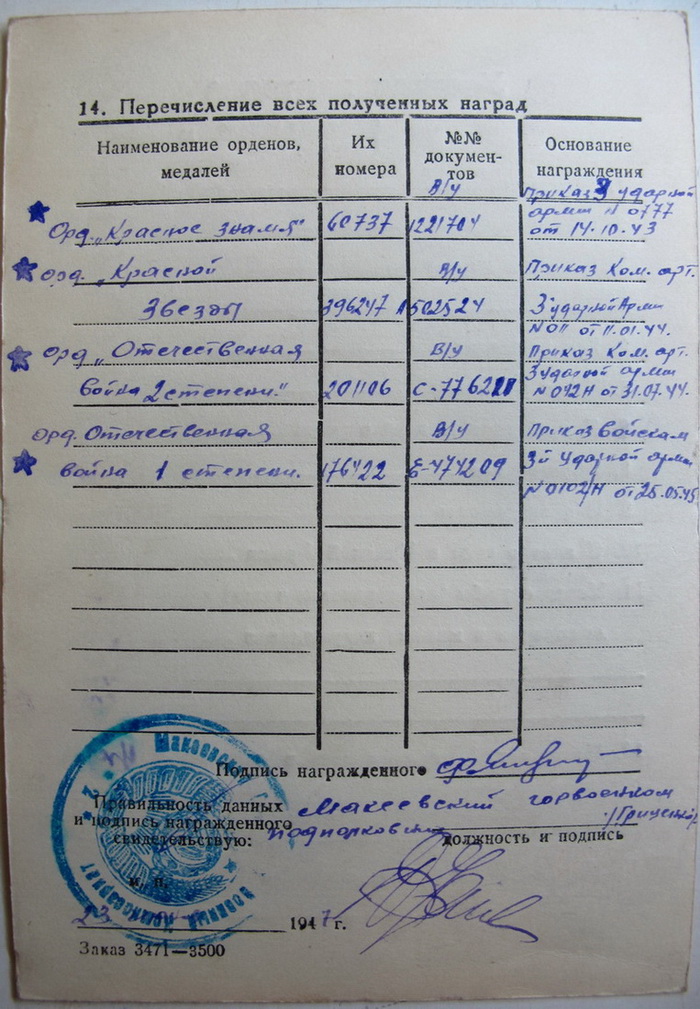 14. Перечисление всех полученных наград
Наименование орденов, медалей
Их номера
№№ документов
Основание награждения
Орд. „Красное знамя" 60737 в/у 1221704 Приказ 3 ударной армии от 14.10.43
орд. „Красной в/у Приказ Ком. арт.
Звезды 396247 502524 3 ударной Арми
N 011 от 11.01.44.
орд „Отечественная в/у Приказ Ком. арт.
война 2 степени." 201106 С-77621 3 ударной арми
N 042н от 31.07.44.
орд. Отечественная в/у Приказ Войскам
война 1 степени. 176422 Е-474209 3й ударной арми
N 0102/н от 25.05.45
Подпись награжденного
Правильность данных
и подпись награжденного
свидетельствую:
Макеевский горвоенком
подполковник /Гриценко/
должность и подпись
м. п.
23 1947 г.
Заказ 3471—3500
Макеевский
Военный Комиссариат